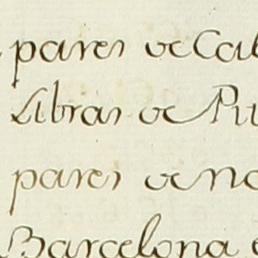 pares de Cal
Libras de Pu
pares de no
Barcelona